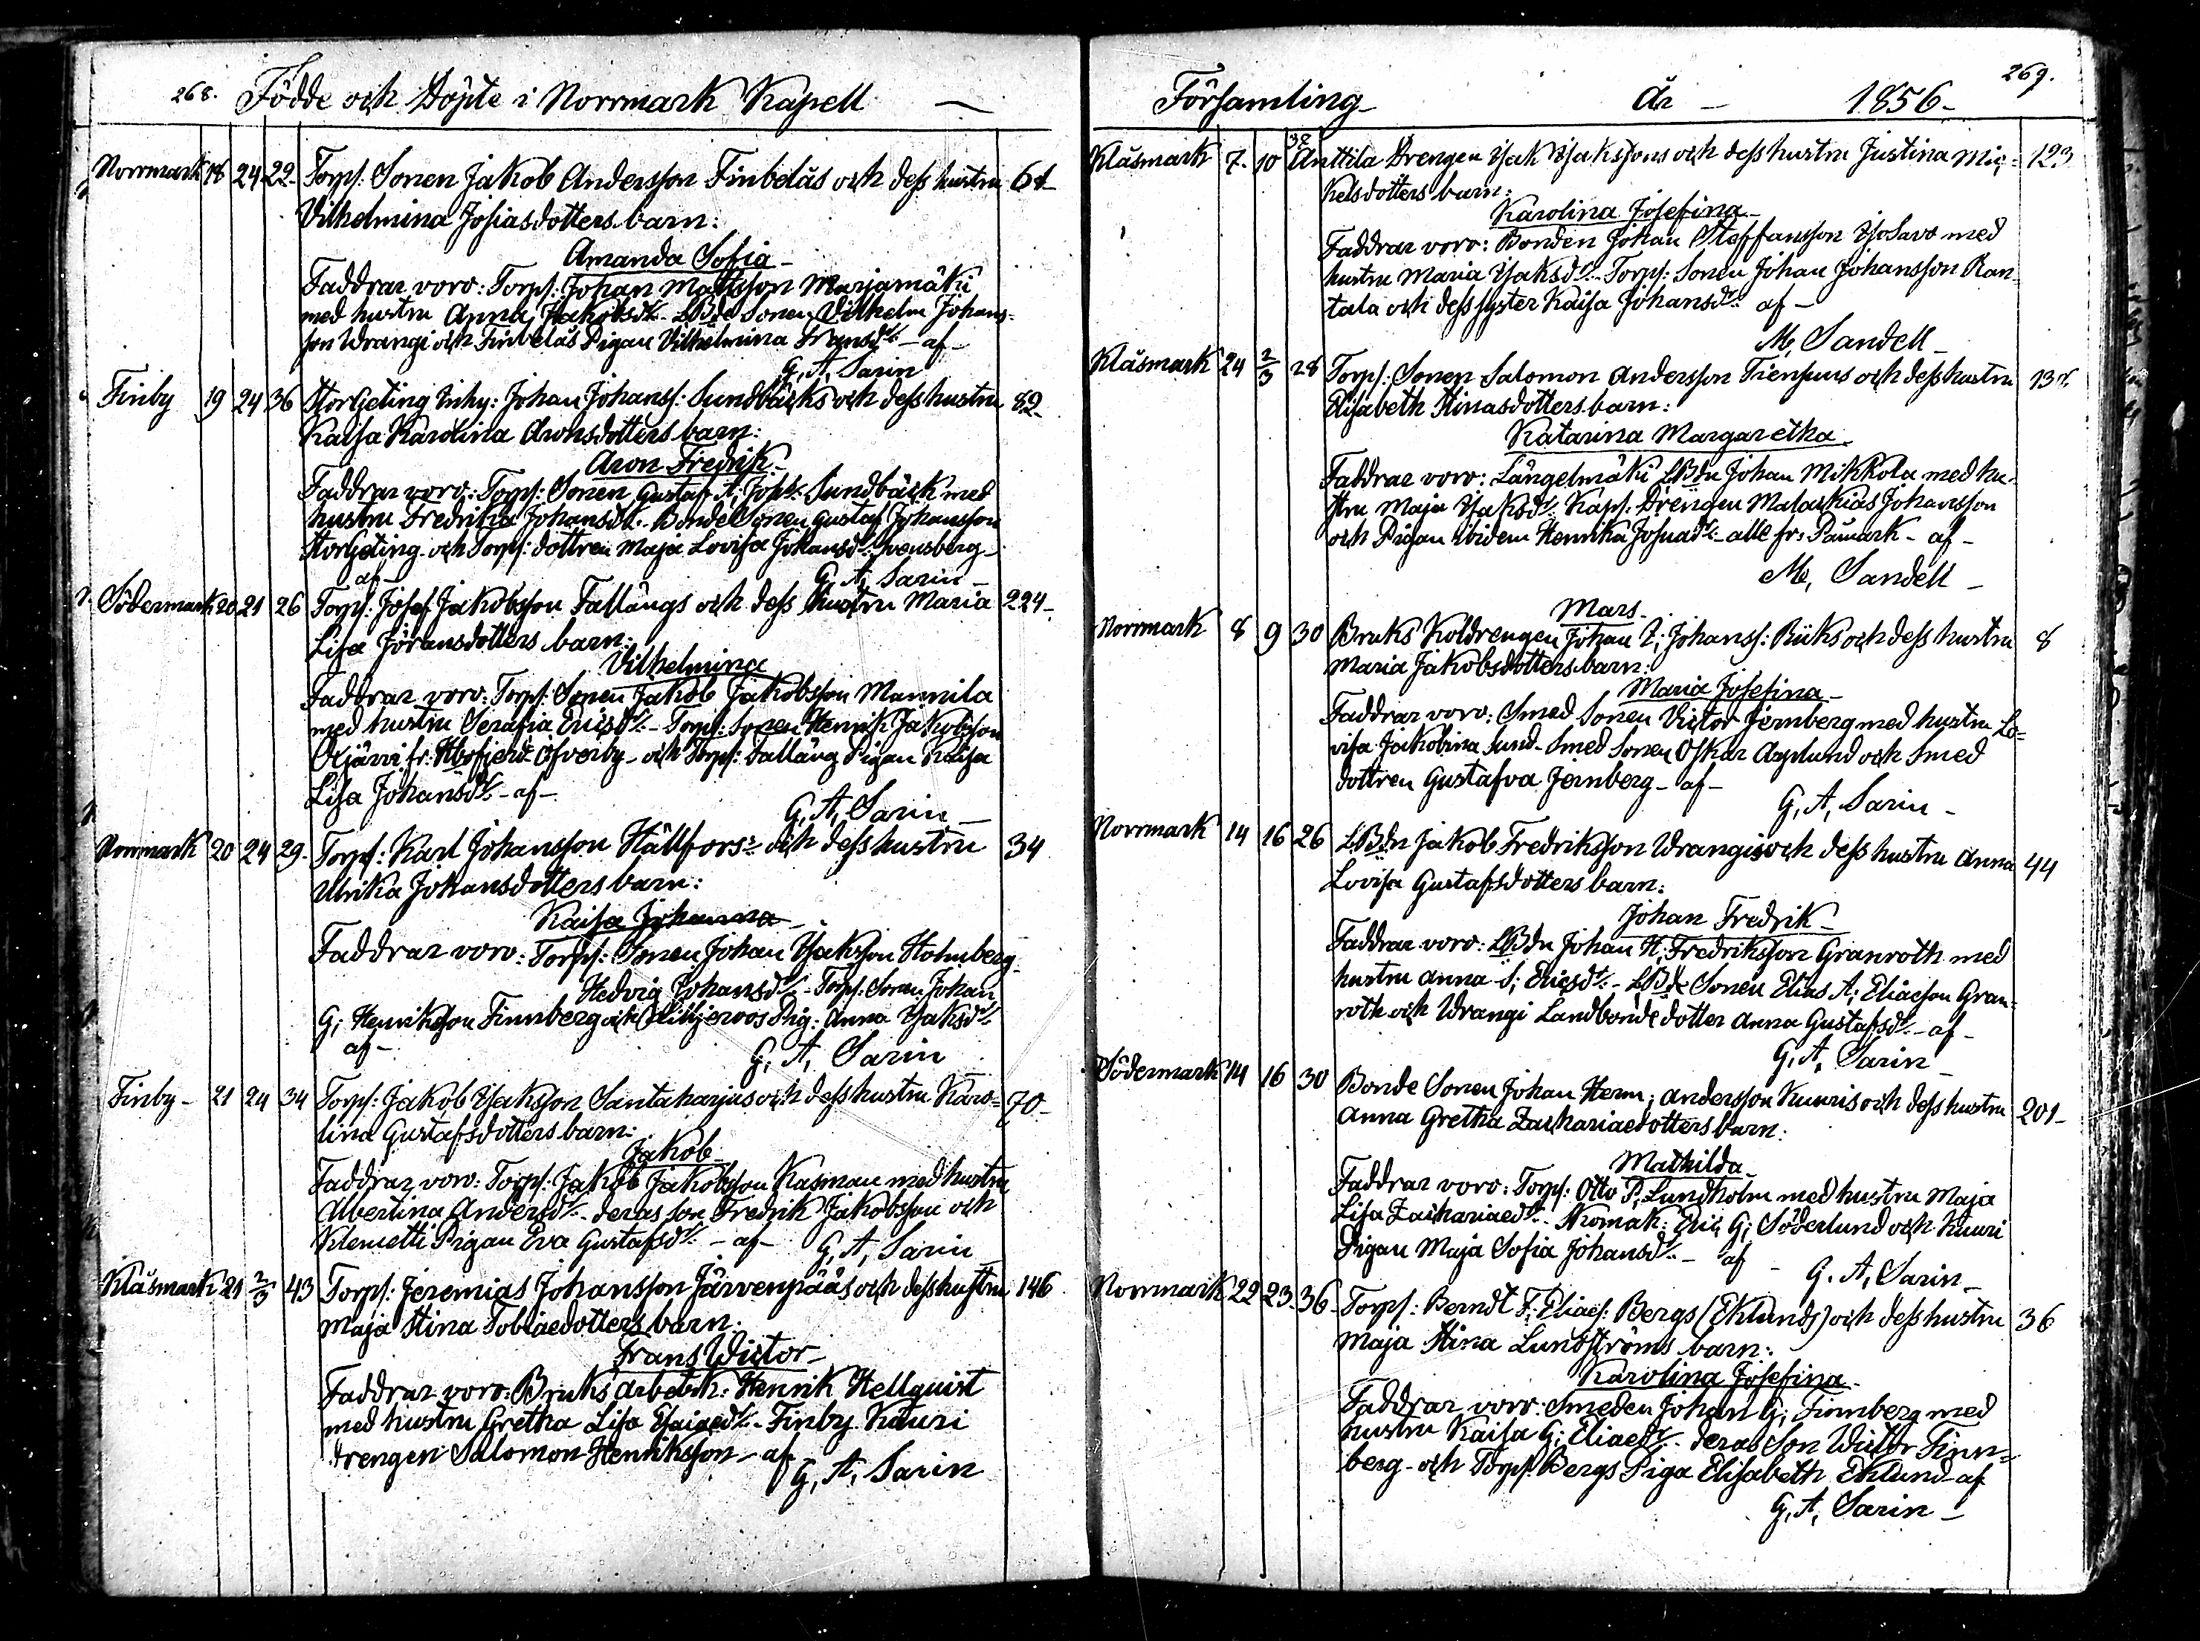 268. Födde och Döpte i Norrmark Kapell —
Norrmark 18 24 22 Torps: Sonen Jakob Andersson Finbeläs och dess hustru 61
Vilhelmina Josiasdotters barn:
Amanda Sofia
Faddrar voro: Torps: Johan Mattsson Marjamäki
med hustru Anna Jakobsdr. LBde Sonen Vilhelm Johans-
son Wrangi och Finbeläs Pigan Vilhelmina Fransdr. — af —
G. A. Sarin
Finby 19 24 36 Storgeting Inhy: Johan Johanss: Sundbäcks och dess hustru 82
Kaisa Karolina Aronsdotters barn:
Aron Fredrik
Faddrar voro: Torps: Sonen Gustaf A. Johs: Sundbäck med
hustru Fredrika Johansdr. Bonde Sonen Gustaf Johansson
Storgeting och Torps: dottren Maja Lovisa Johansdr. Svensberg —
af — G. A. Sarin —
Södermark 20 21 26 Torps: Josef Jakobsson Fallängs och dess hustru Maria 224
Lisa Jöransdotters barn:
Vilhelmina
Faddrar voro: Torps: Sonen Jakob Jakobsson Mannila
med hustru Serafia Ericsdr. — Torps: Sonen Henrik Jakobsson
Oxjärvi fr: Hvofjerd Öfverby — och Torps: Falläng Pigan Kaisa
Lisa Johansdr. — af —
G. A. Sarin —
Norrmark 20 24 29 Torps: Karl Johansson Hällfors: och dess hustru 34
Ulrika Johansdotters barn:
Kaisa Johanna
Faddrar voro: Torps: Sonen Johan Isaksson Holmberg —
Hedvig Johansdr. — Torps: Sonen Johan
G. Henriksson Finnberg och Liljeroos Pig: Anna Isaksdr.
af — G. A. Sarin —
Finby — 21 24 34 Torps: Jakob Isaksson Santaharjus och dess hustru Karo= 70
lina Gustafsdotters barn:
Jakob
Faddrar voro: Torps: Jakob Jakobsson Kasman med hustru
Albertina Andersdr. — deras son Fredrik Jakobsson och
Klemetti Pigan Eva Gustafsdr. — af — G. A. Sarin
Klåsmark 21 2/3 43 Torps: Jeremias Johansson Järvenpääs och dess hustru 146
Maja Stina Tobiaedotters barn:
Frans Wictor
Faddrar voro: Bruks arbetsk: Henrik Hellquist
med hustru Gretha Lisa Esaiaedr. — Finby Kauri
drengen Salomon Henriksson — af
G. A. Sarin
Församling År — 1856 269.
Klåsmark 7 10 38 Anttila Drengen Isak Isakssons och dess hustru Justina Mic= 123
kelsdotters barn:
Karolina Josefina
Faddrar voro: Bonden Johan Staffansson Isosavo med
hustru Maria Isaksdr. Torps: Sonen Johan Johansson Ran-
tala och dess syster Kaisa Johansdr. af —
M. Sandell —
Klåsmark 24 2/3 28 Torps: Sonen Salomon Andersson Triensuus och dess hustru
Elisabeth Stinasdotters barn:
Katarina Margaretha
Faddrar voro: Längelmäki LBdn Johan Mikkola med hu-
stru Maja Isaksdr. Kaps. Drengen Malackias Johansson
och Pigan ibidem Henrika Josuadr. — alle fr: Påmark — af —
M. Sandell —
Mars
Norrmark 8 9 30 Bruks Koldrengen Johan I. Johanss: Riiks och dess hustru 8
Maria Jakobsdotters barn:
Maria Josefina
Faddrar voro: Smed Sonen Victor Jernberg med hustru Lo=
visa Jakobina Sund — Smed Sonen Oskar Asplund och Smed
dottren Gustafva Jernberg — af —
G. A. Sarin —
Norrmark 14 16 26 LBdn Jakob Fredriksson Wrangis och dess hustru Anna 44
Lovisa Gustafsdotters barn:
Johan Fredrik
Faddrar voro: LBdn Johan H. Fredriksson Granroth med
hustru Anna S. Ericsdr. — LBde Sonen Elias A. Eliaeson Gran-
roth och Wrangi Landbonde dotter Anna Gustafsdr. — af —
G. A. Sarin —
Södermark 14 16 30 Bonde Sonen Johan Herm. Andersson Knuris och dess hustru 201
Anna Gretha Zachariaedotters barn:
Mathilda
Faddrar voro: Torps: Otto P. Lundholm med hustru Maja
Lisa Zachariaedr. — Skomak: Eric G. Söderlund och Knuri
Pigan Maja Sofia Johansdr. — af —
G. A. Sarin —
Norrmark 22 23 36 Torps: Berndt F. Eliaes: Bergs (Eklunds) och dess hustru 36
Maja Stina Lundströms barn:
Karolina Josefina
Faddrar voro: Smeden Johan G. Finnberg med
hustru Kaisa G. Eliaedr. — deras Son Wictor Finn=
berg — och Torps Bergs Piga Elisabeth Eklund — af
G. A. Sarin —